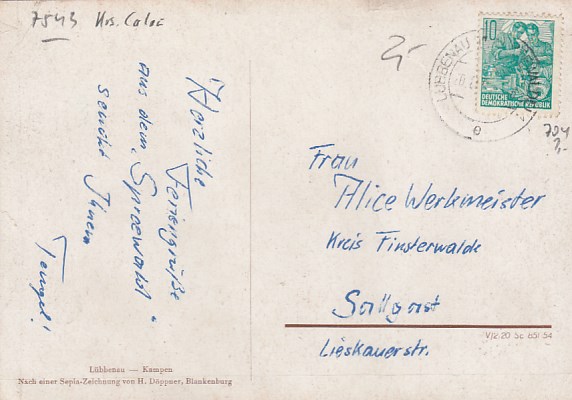 7543 Krs. Calau
2,-
LÜBBENAU
10
DEUTSCHE
DEMOKRATISCHE REPUBLIK
704
2,-
"Herzliche
Feriengrüße
aus dem Spreewald"
sendet Ihnen
Frau
Alice Werkmeister
Kreis Finsterwalde
Sallgast
Lieskauerstr.
V/2/20 Sc 851 54
Lübbenau — Kampen
Nach einer Sepia-Zeichnung von H. Döppner, Blankenburg